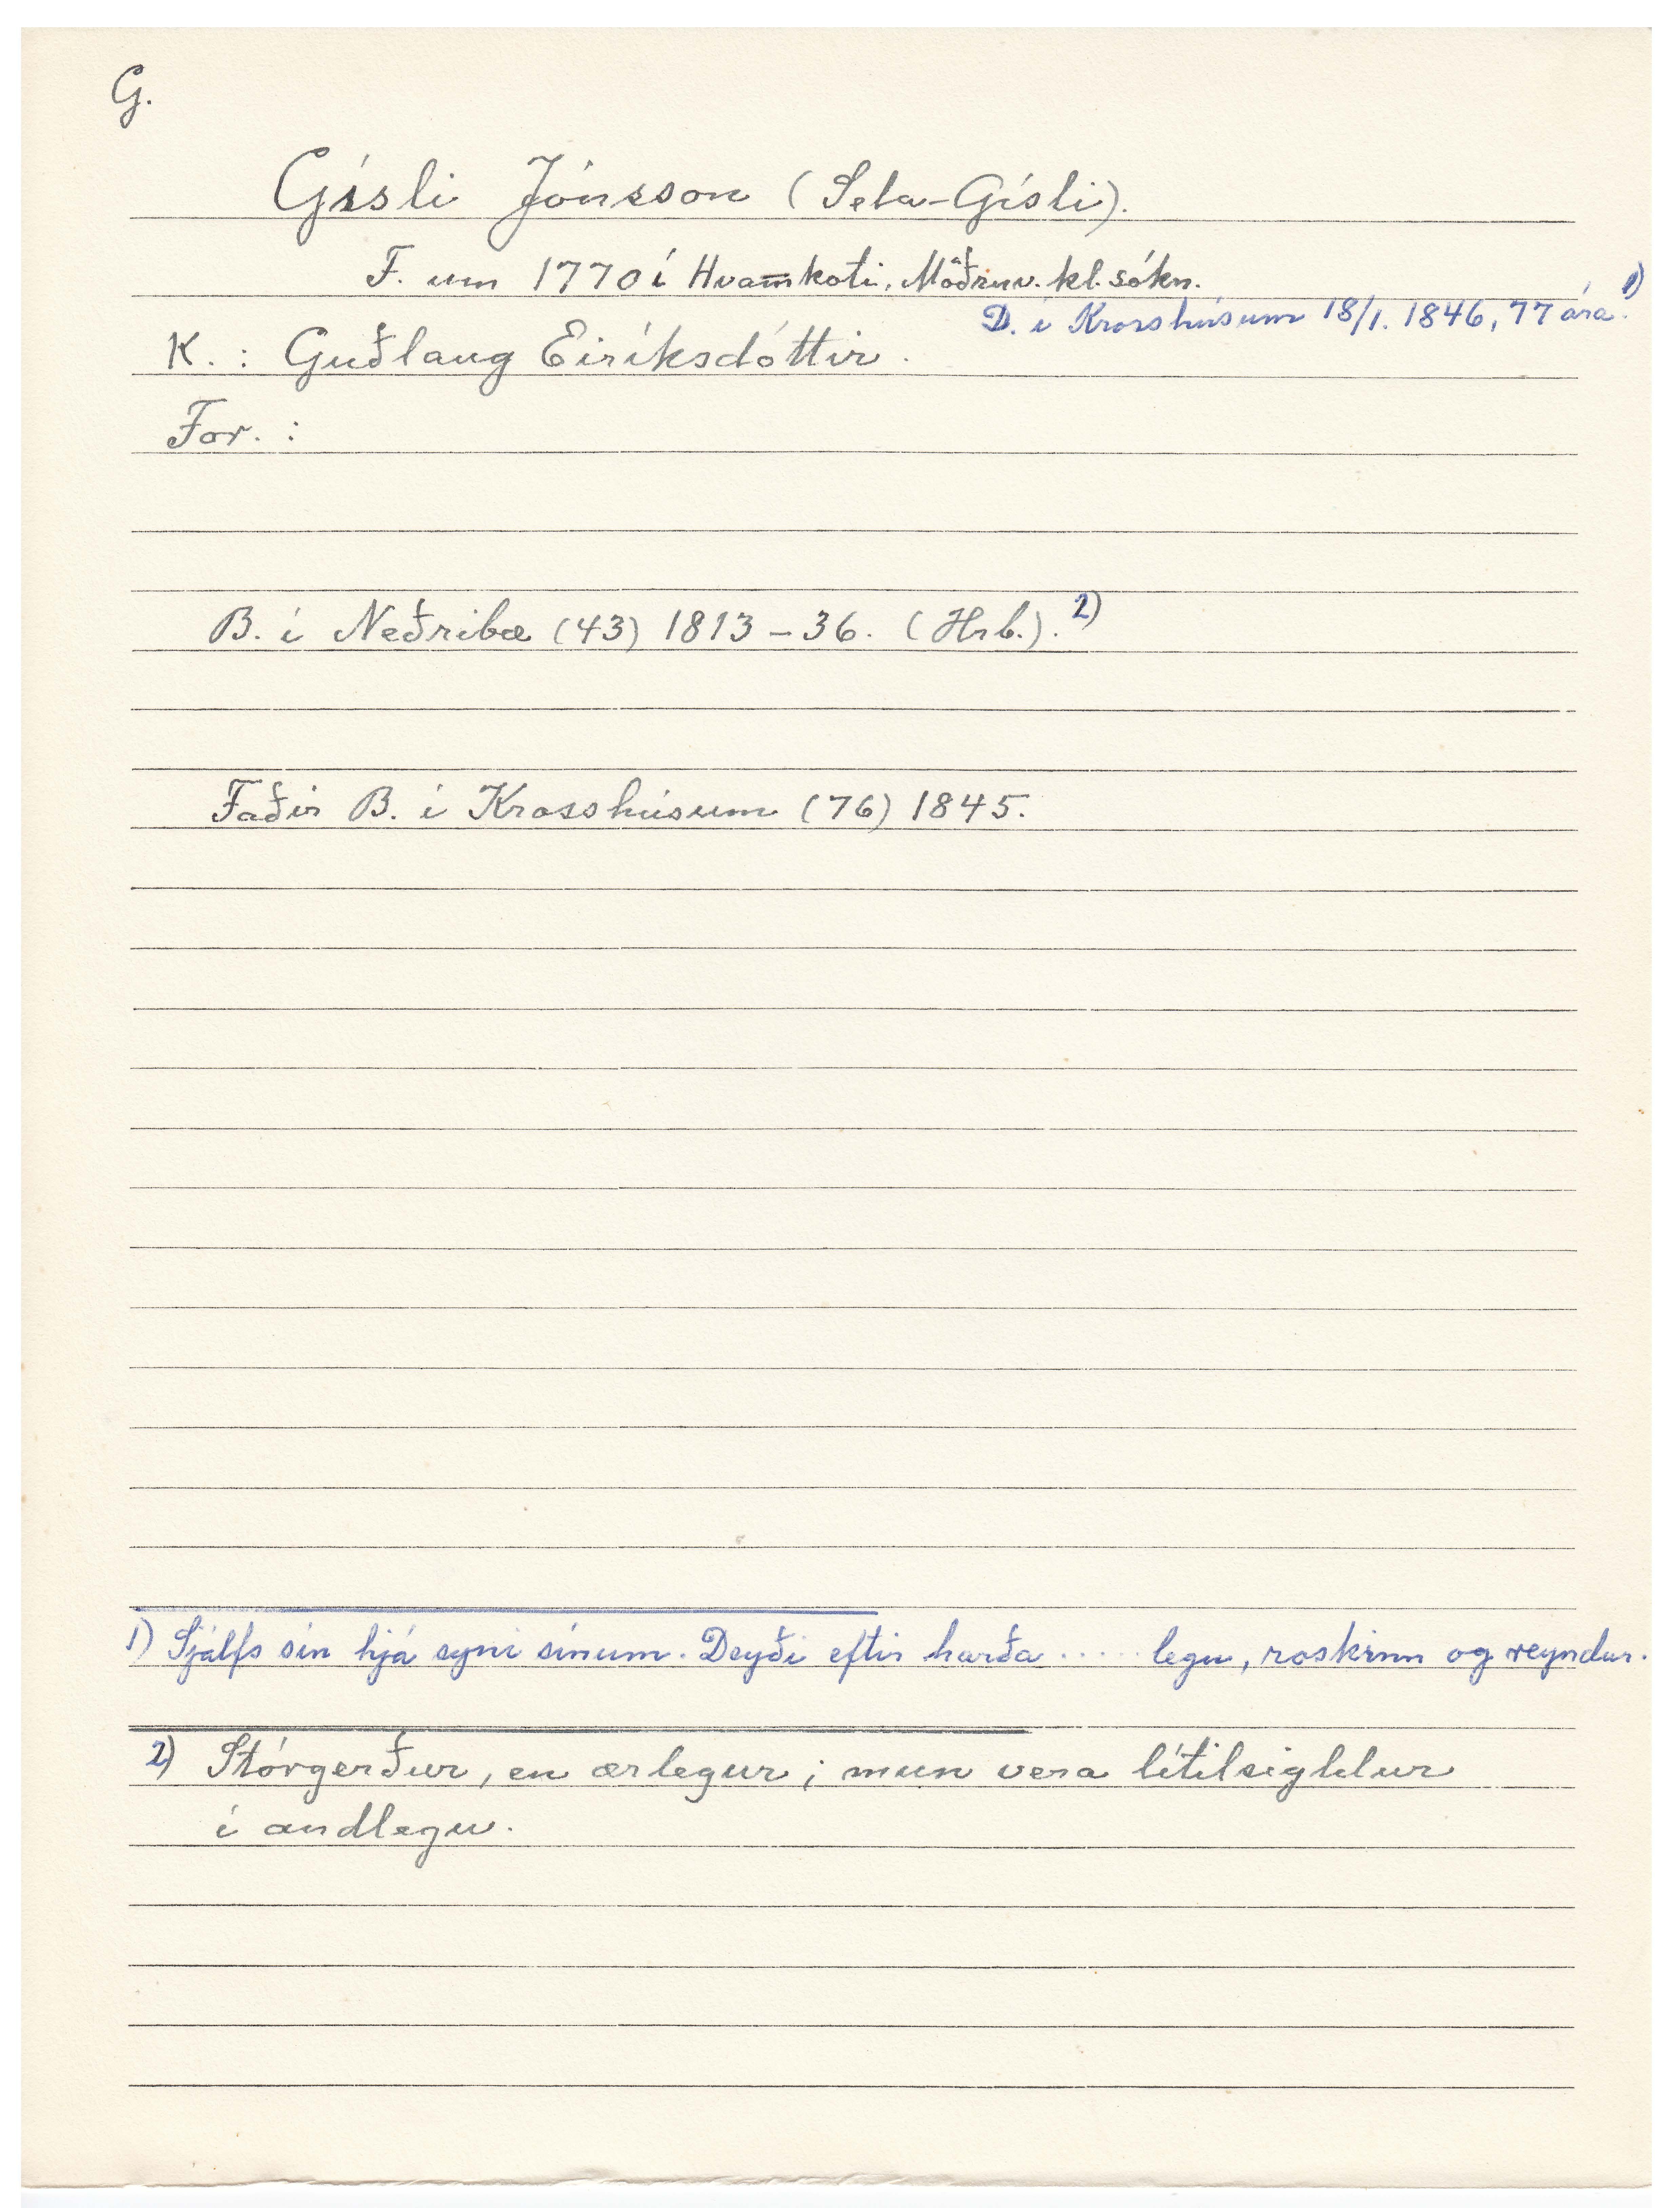 G.
Gísli Jónsson (Sela-Gísli).
F. um 1770 í Hvam̅koti, Möðruv. kl. sókn.
D. í Krosshúsum 18/1. 1846, 77 ára. 1)
K. : Guðlaug Eiríksdóttir.
For. :
B. í Neðribæ (43) 1813 – 36. (Hrb.). 2)
Faðir B. í Krosshúsum (76) 1845.
1) Sjálfs sín hjá syni sínum. Deyði eftir harða ..... legu, roskinn og reyndur.
2) Stórgerður, en ærlegur; mun vera lítilsigldur
í andlegu.